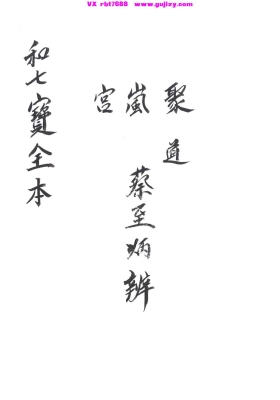 VX rbt7688  www.gujizy.com
聚道
嵐 蔡至炳辦
宮
和七寶全本